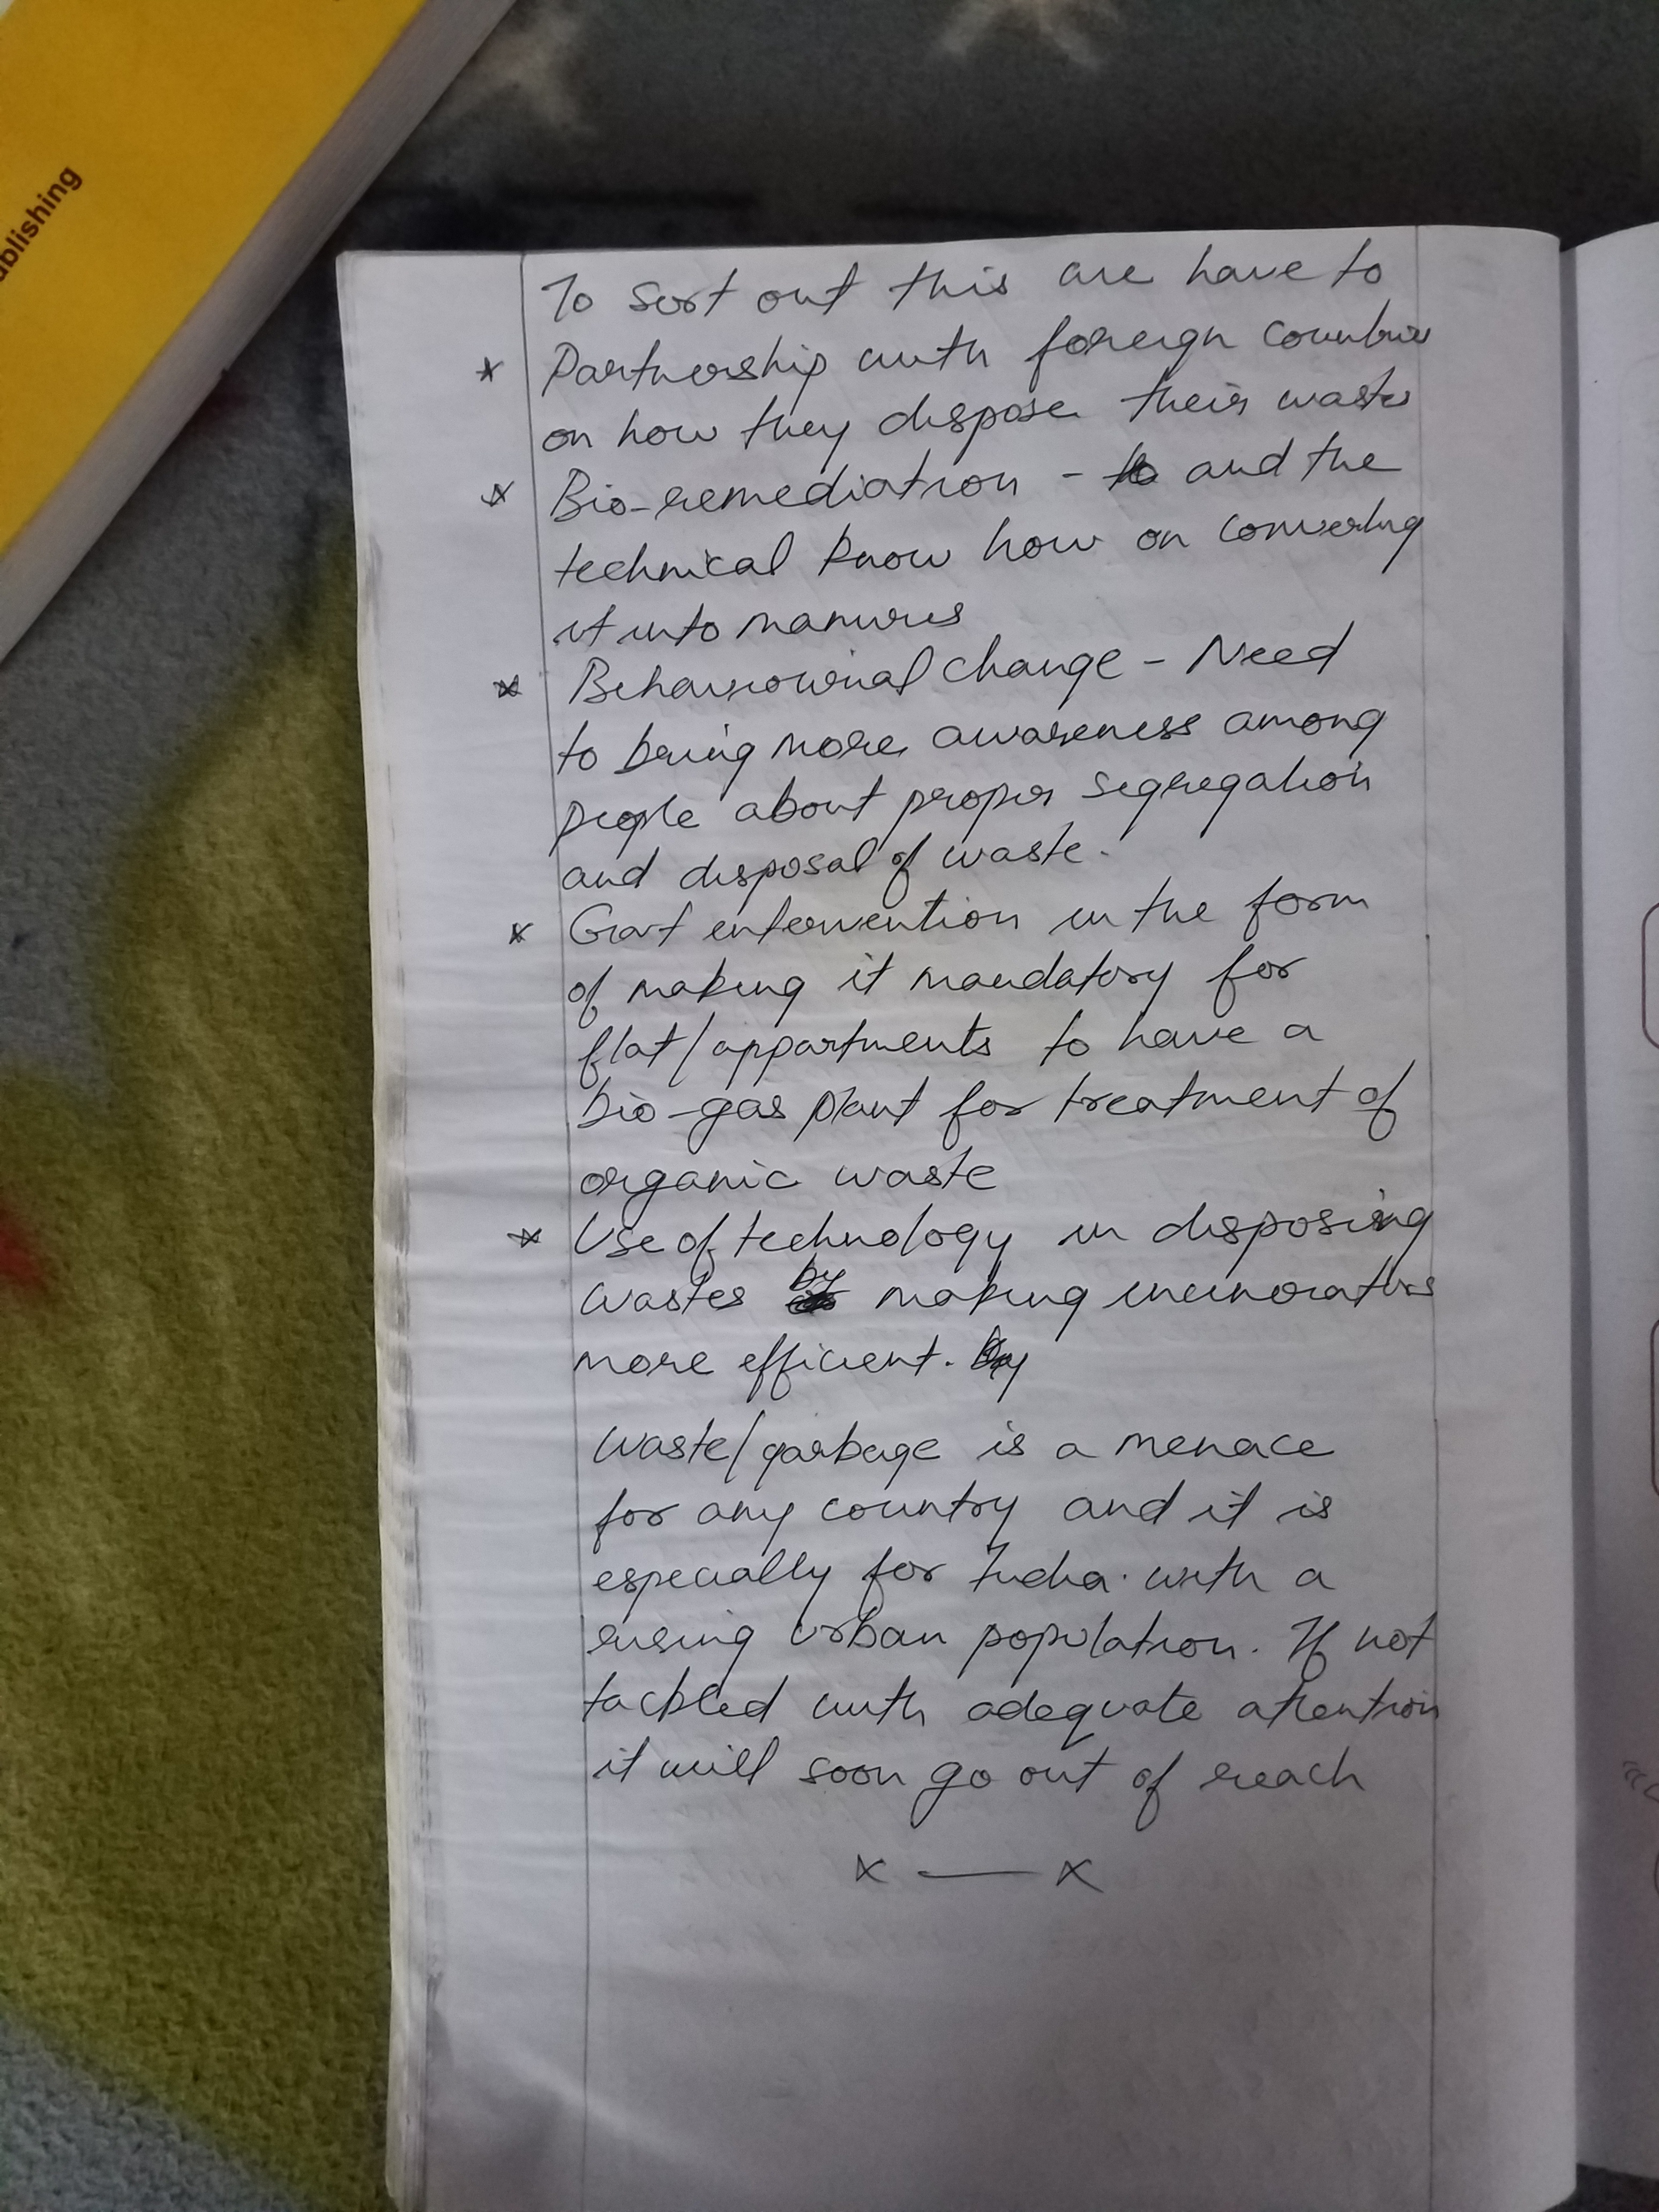 ublishing
To sort out this we have to
* Partnership with foreign countries
on how they dispose their wastes
* Bio-remediation - and the
technical know how on converting
it into manures
* Behaviourial change - Need
to bring more awareness among
people about proper segregation
and disposal of waste.
* Govt intervention in the form
of making it mandatory for
flat/appartments to have a
bio-gas plant for treatment of
organic waste
* Use of technology in disposing
wastes by making incinorators
more efficient.
Waste/garbage is a menace
for any country and it is
especially for India. with a
rising urban population. If not
tackled with adequate attention
it will soon go out of reach
x — x